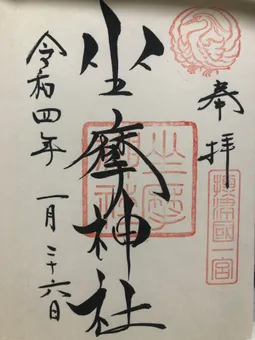 奉拝
摂津國一宮
坐摩神社
令和四年
一月二十六日